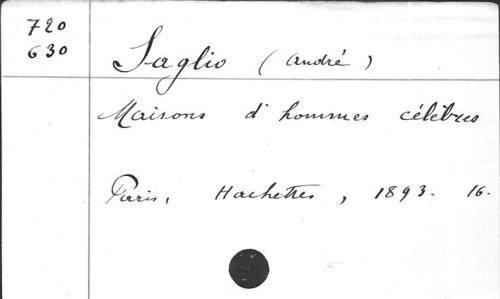 720
630
Saglio (André)
Maisons d'hommes célèbres
Paris, Hachette, 1893. 16.